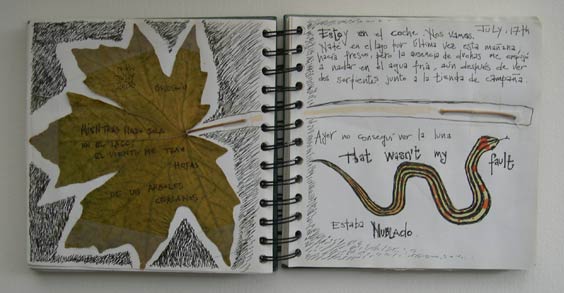 JULY, 17th
Estoy en el coche. Nos vamos.
Nadé en el lago por última vez esta mañana,
hacía fresco, pero la ausencia de
a nadar en el agua fría, aún después de ver
dos serpientes junto a la tienda de campaña.
MIENTRAS NADO SOLA
EN EL LAGO,
EL VIENTO ME TRAE
HOJAS
DE LOS ÁRBOLES
CERCANOS
Ayer no conseguí ver la luna
That wasn't my fault
Estaba NUBLADO.